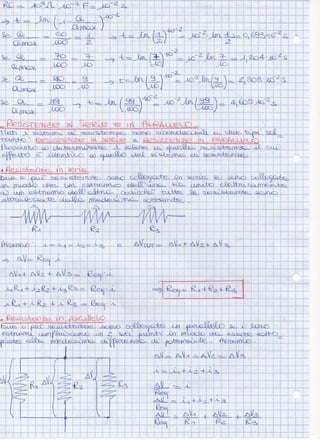 RC = 10⁵Ω · 10⁻⁷F = 10⁻² s
→ t = ln (1 - Q / Qlimax)^10⁻²
Se Q / Qlimax = 50 / 100 = 1 / 2 → t = ln (1/2)^10⁻² = 10⁻² ln 1/2 = 0,693·10⁻² s
Se Q / Qlimax = 70 / 100 = 7 / 10 → t = ln (7/10)^10⁻² = 10⁻² ln 7/10 = 1,204·10⁻² s
Se Q / Qlimax = 90 / 100 = 9 / 10 → t = ln (9/10)^10⁻² = 10⁻² ln (9/10) = 2,303·10⁻² s
Se Q / Qlimax = 99 / 100 → t = ln (99/100)^10⁻² = 10⁻² ln (99/100) = 4,605·10⁻² s
RESISTENZE IN SERIE E IN PARALLELO
Tutti i sistemi di resistenze sono riconducibili a due tipi di
: RESISTENZE IN SERIE e RESISTENZE IN PARALLELO
il valore di quella resistenza il cui
effetto è identico a quello del sistema di resistenze
• Resistenze in serie
Due o più resistenze sono collegate in serie se sono collegate
in modo che un estremo dell'una sia unito elettricamente
a un estremo dell'altra, cosicché tutte le resistenze sono
attraversate dalla medesima corrente
R1 R2 R3
Avremo i = i1 = i2 = i3 e ΔVTOT = ΔV1 + ΔV2 + ΔV3
→ ΔV = Req · i
ΔV1 + ΔV2 + ΔV3 = Req · i
i1R1 + i2R2 + i3R3 = Req · i → Req = R1 + R2 + R3
iR1 + iR2 + iR3 = Req · i
• Resistenze in parallelo
Due o più resistenze sono collegate in parallelo se i loro
estremi confluiscono in 2 soli punti in modo da essere sotto
poste alla medesima differenza di potenziale. Avremo
ΔV = ΔV1 = ΔV2 = ΔV3
i = i1 + i2 + i3
ΔV R1 ΔV R2 ΔV R3
ΔV / Req = i
ΔV / Req = i1 + i2 + i3
ΔV / Req = ΔV1 / R1 + ΔV2 / R2 + ΔV3 / R3